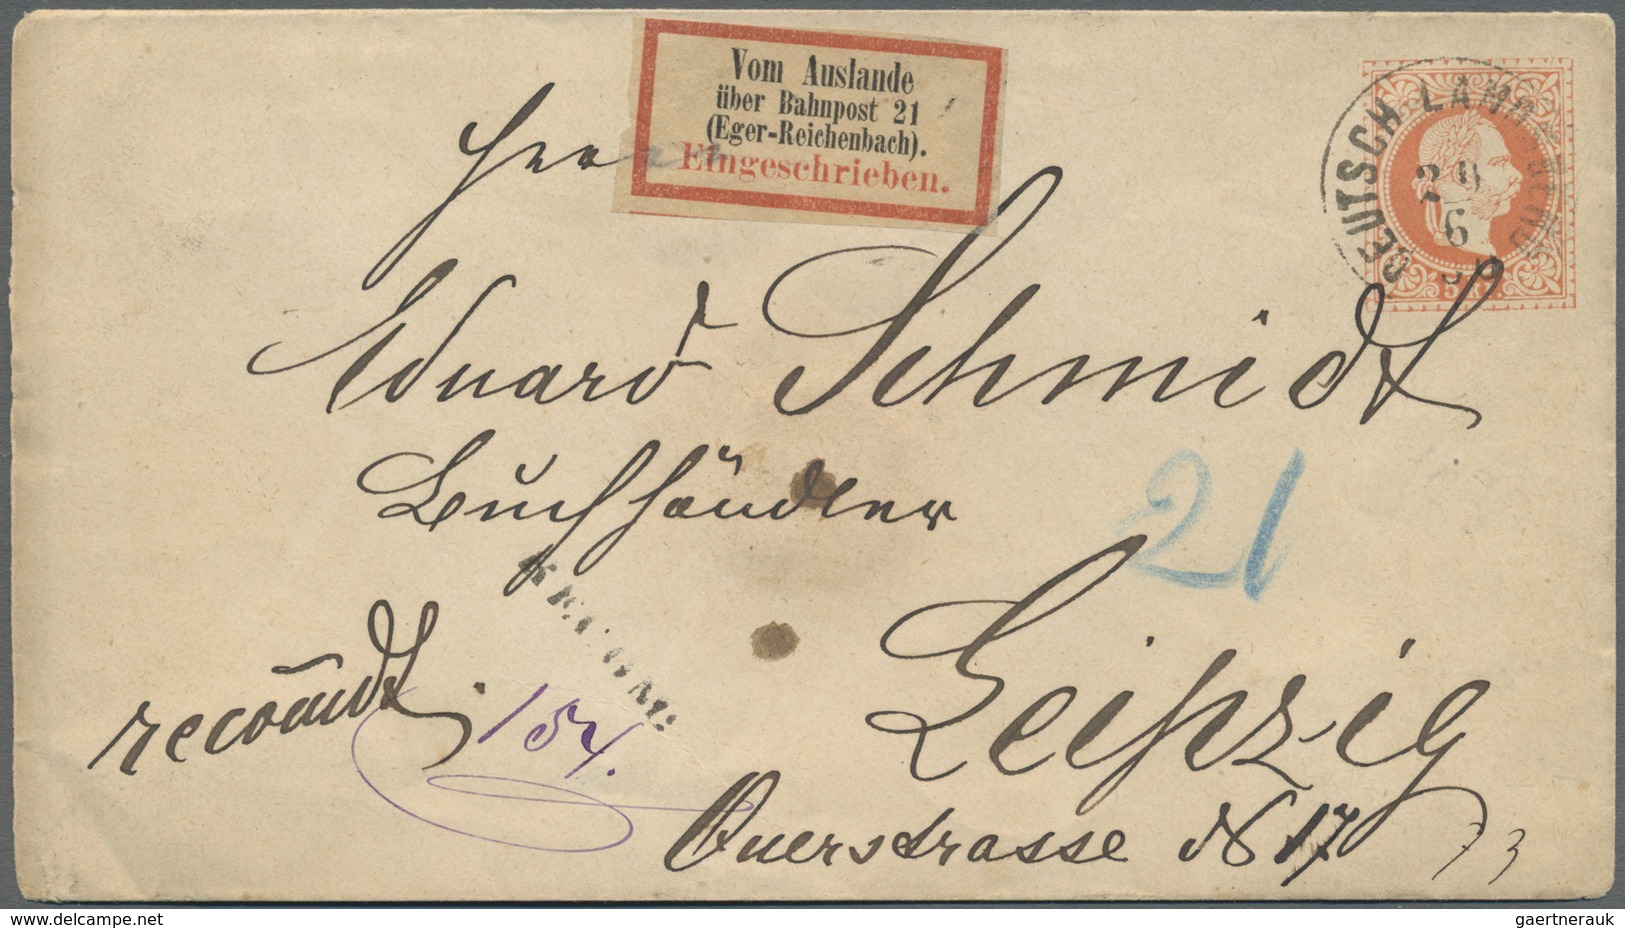 Vom Auslande
über Bahnpost 21
(Eger-Reichenbach).
Eingeschrieben.
DEUTSCH
6
5
Herrn
Eduard Schmidt
Buchhändler
21
Leipzig
recomdt 154.
Querstrasse N 17
73
© www.delcampe.net
gaertnerauk